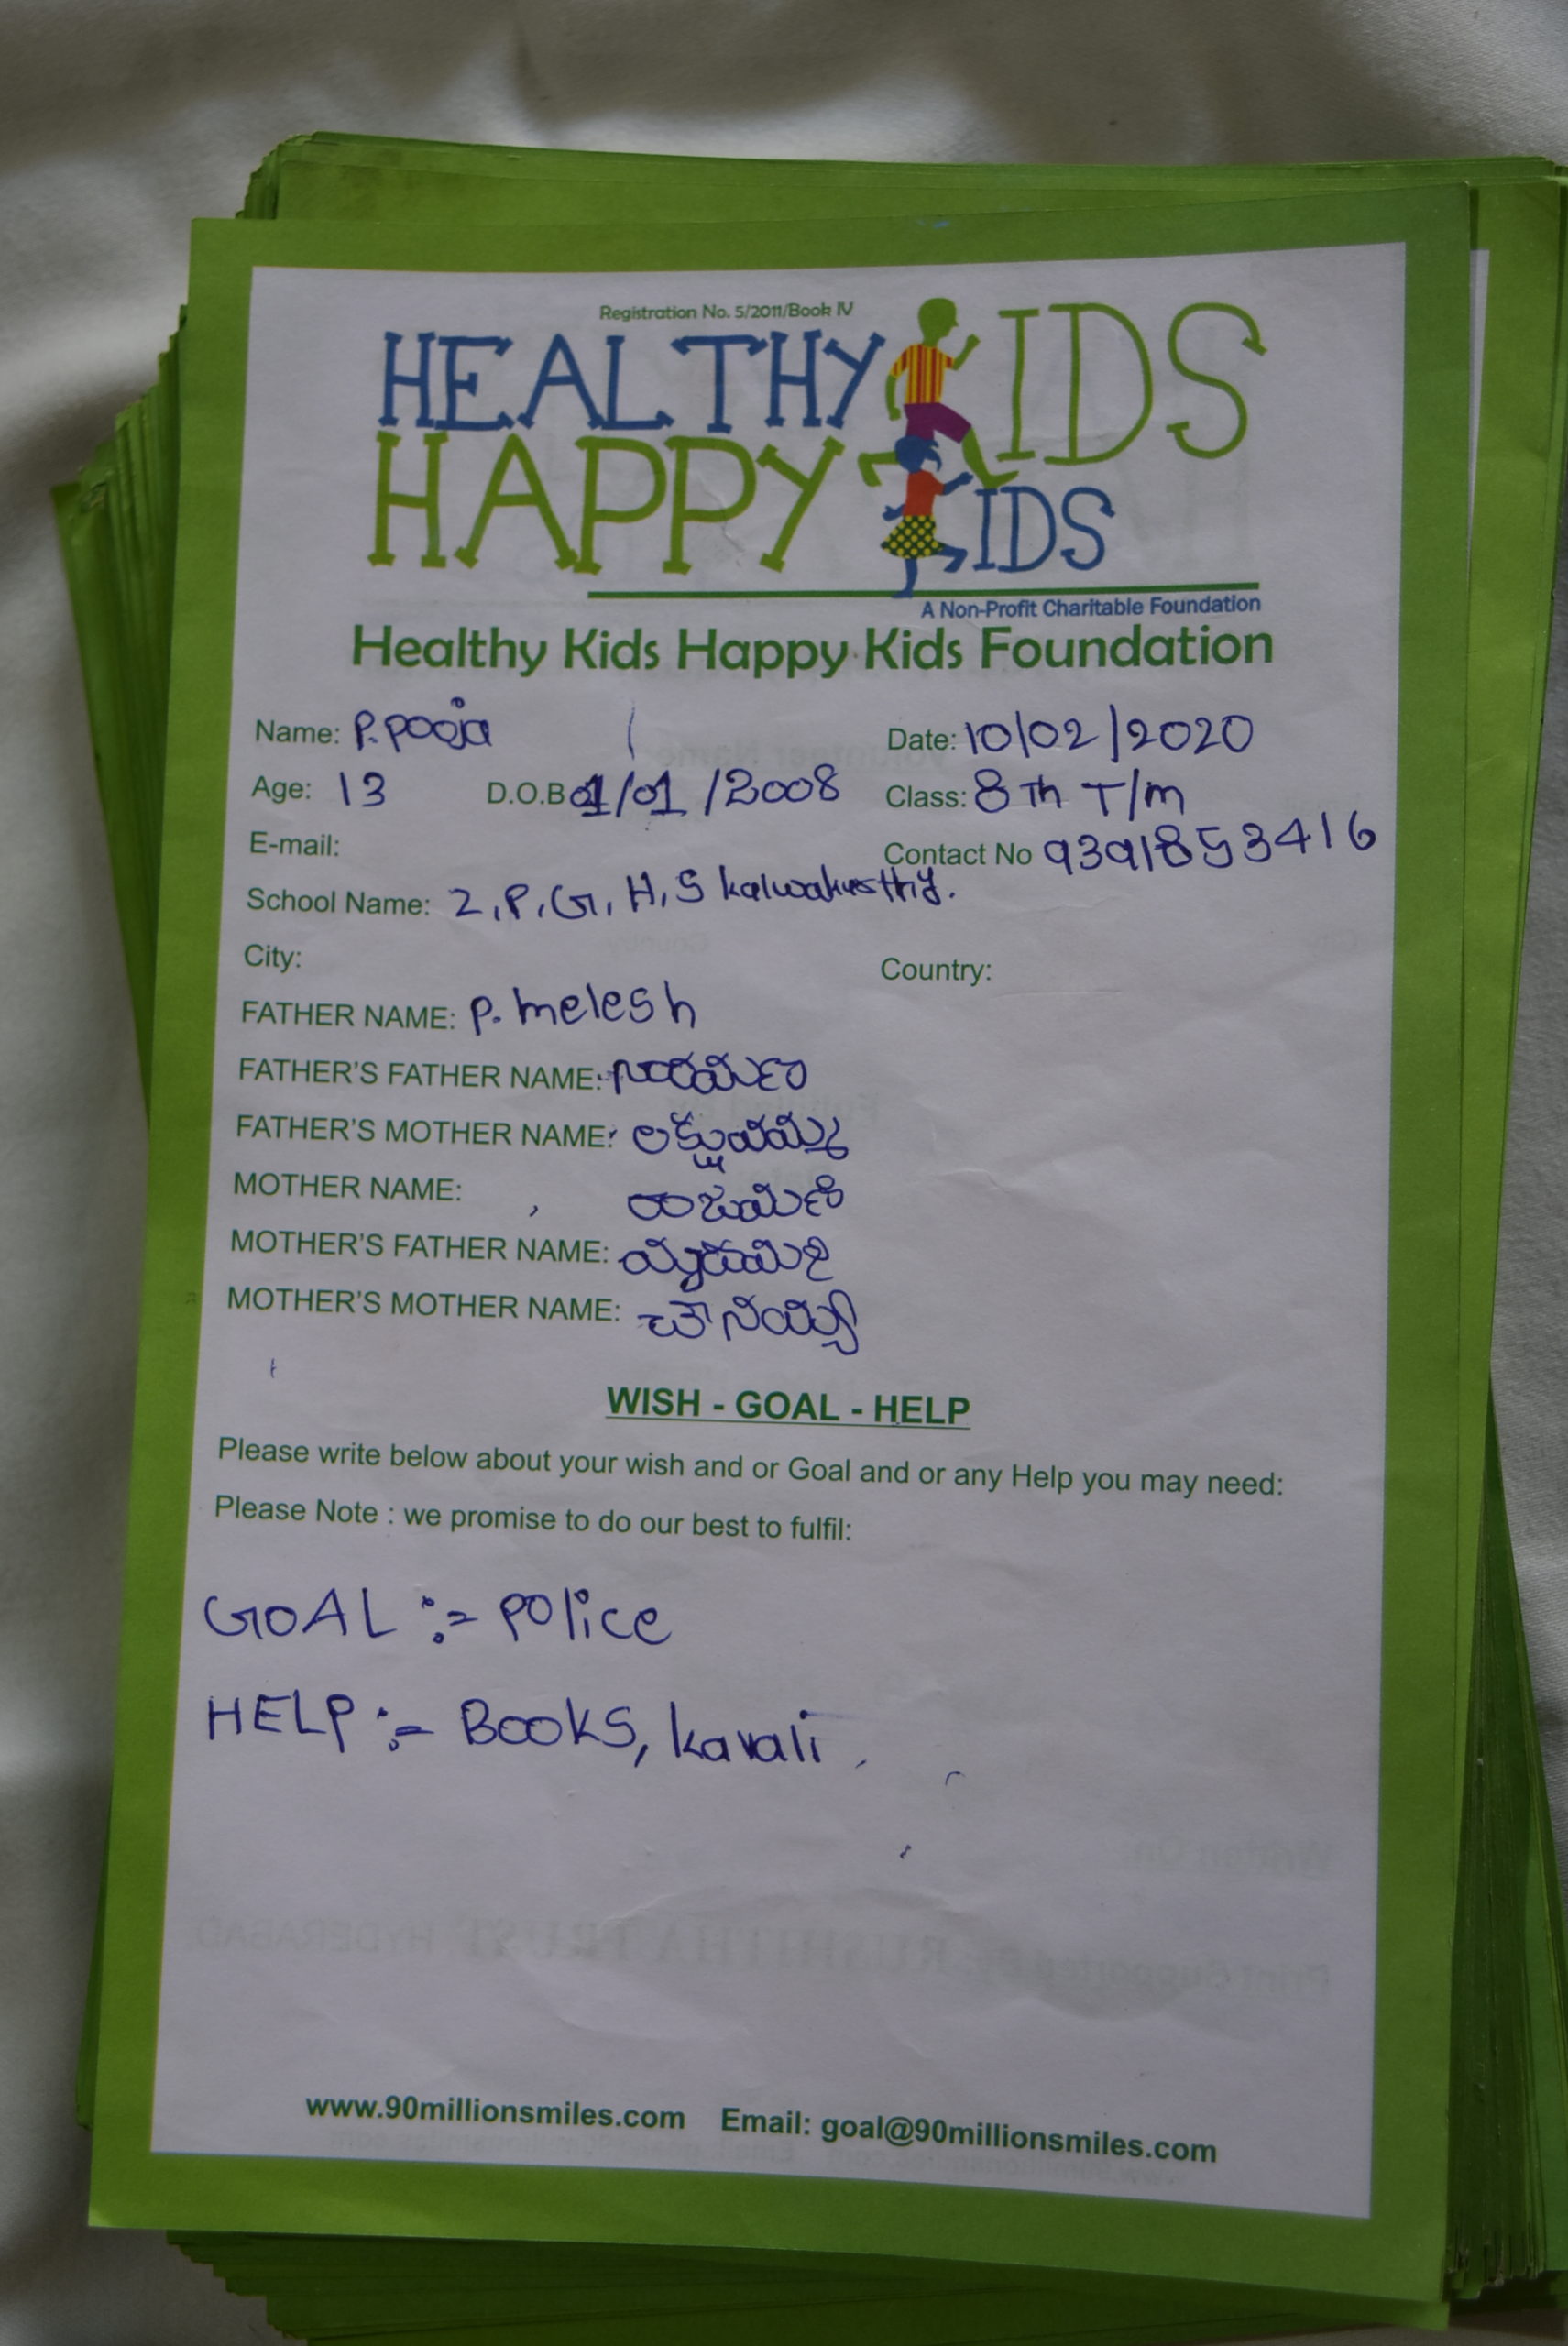 Registration No. 5/2011/Book IV
HEALTHY KIDS
HAPPY KIDS
A Non-Profit Charitable Foundation
Healthy Kids Happy Kids Foundation
Name: P.pooja Date: 10/02/2020
Age: 13 D.O.B 01/01/2008 Class: 8 Th T/m
E-mail: Contact No 9391853416
School Name: Z.P.G.H.S kalwakurthy.
City: Country:
FATHER NAME: P. melesh
FATHER'S FATHER NAME:
FATHER'S MOTHER NAME: లక్ష్మమ్మ
MOTHER NAME:
MOTHER'S FATHER NAME:
MOTHER'S MOTHER NAME:
WISH - GOAL - HELP
Please write below about your wish and or Goal and or any Help you may need:
Please Note : we promise to do our best to fulfil:
GOAL :- police
HELP :- Books, kavali.
www.90millionsmiles.com Email: goal@90millionsmiles.com